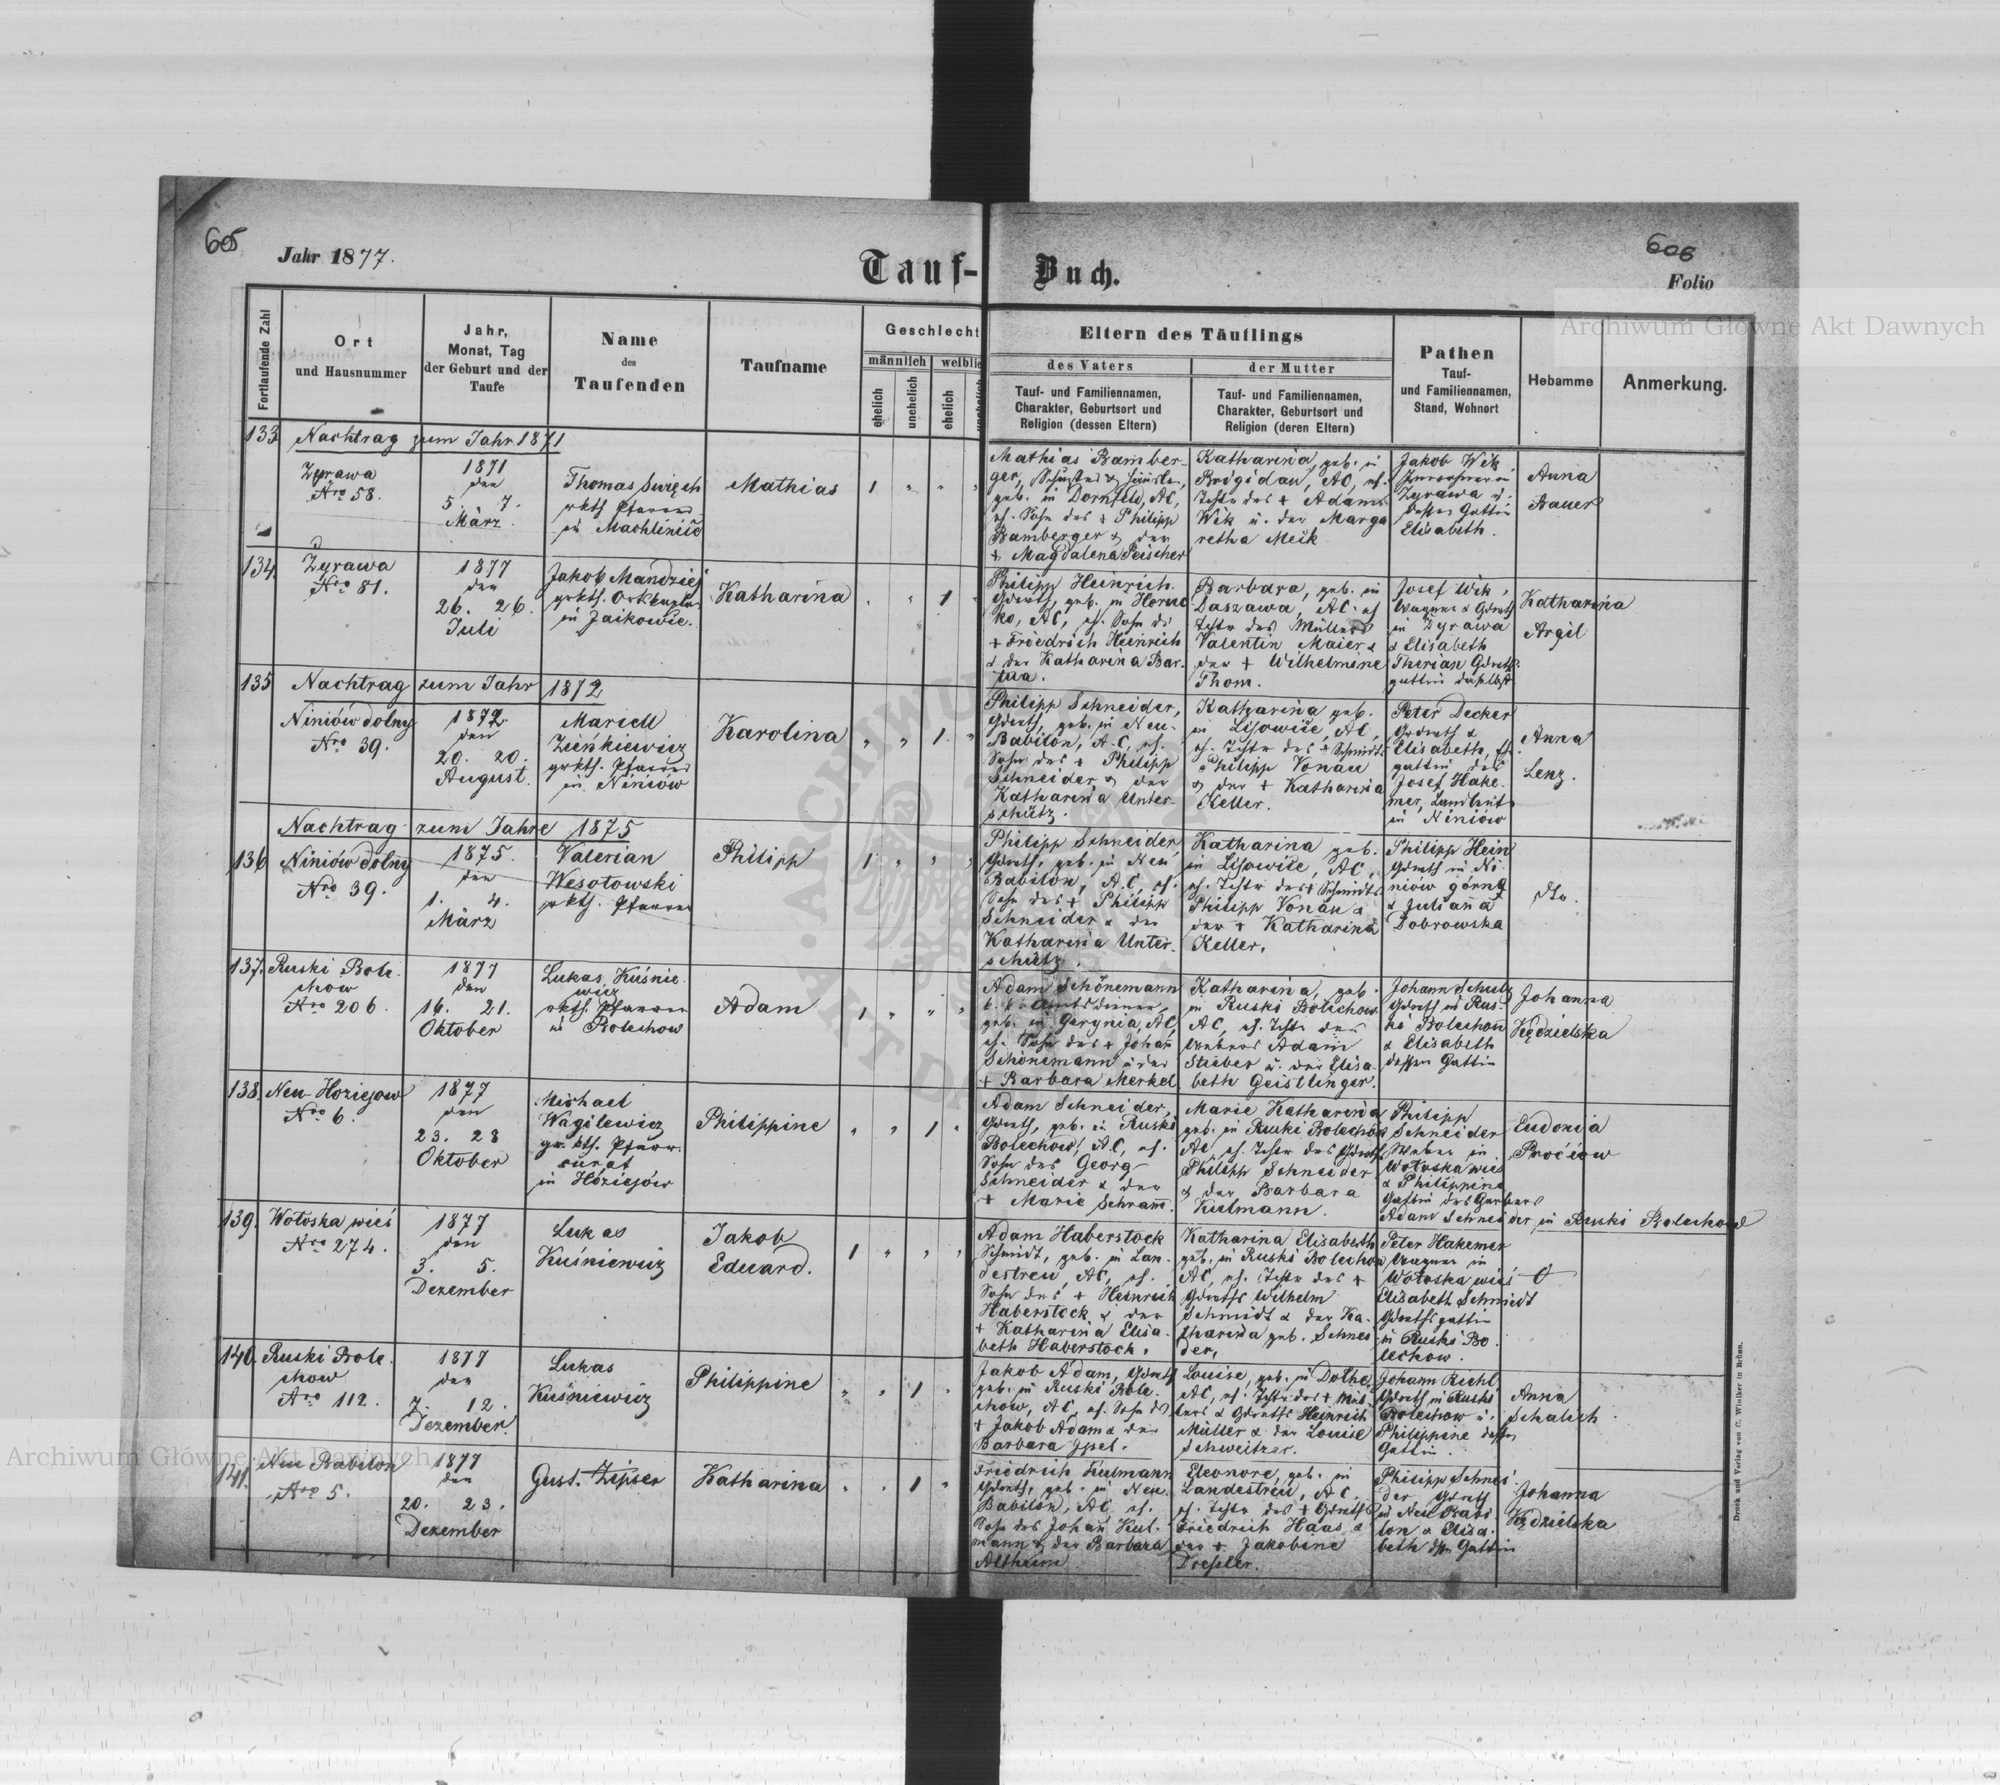 605
Jahr 1877.
Tauf-Buch.
606
Folio
Archiwum Główne Akt Dawnych
Fortlaufende Zahl
Ort
und Hausnummer
Jahr,
Monat, Tag
der Geburt und der
Taufe
Name
des
Taufenden
Taufname
Geschlecht
männlich
ehelich
unehelich
weiblich
ehelich
Eltern des Täuflings
des Vaters
Tauf- und Familiennamen,
Charakter, Geburtsort und
Religion (dessen Eltern)
der Mutter
Tauf- und Familiennamen,
Charakter, Geburtsort und
Religion (deren Eltern)
Pathen
Tauf-
und Familiennamen,
Stand, Wohnort
Hebamme
Anmerkung.
133
Nachtrag zum Jahr 1871
Zyrawa
Nro 58.
1871
den
5. 7.
März.
Thomas Święch
rkth Pfarrer
in Machliniec
Mathias
1 " " "
Mathias Bamber-
ger,
geb. in Dornfeld, AC,
eh. Sohn des + Philipp
Bamberger & der
+ Magdalena Peischer
Katharina, geb. in
Brigidau, AC, eh.
Tochter des + Adam
Wik u. der Marga
retha Meik
Jakob Wik
Zyrawa u.
dessen Gattin
Elisabeth.
Anna
Bauer
134.
Zyrawa
Nro 81.
1877
den
26. 26.
Juli
Jakob Mandziej
grkth.
in Jaikowie.
Katharina
" " 1 "
Philipp Heinrich
Gdwrth, geb. in Horuc
ko, AC, eh. Sohn ds
+ Friedrich Heinrich
& der Katharina Bar-
Barbara, geb. in
Daszawa, AC. eh
Tochter des Müllers
Valentin Maier &
der + Wilhelmine
Thom.
Josef Wik,
Wagner & Gdwrth
in Zyrawa
& Elisabeth
Therian Gdwrths
gattin daselbst
Katharina
Argil
135
Nachtrag zum Jahr 1872
Niniów dolny
Nro 39.
1872
den
20. 20.
August.
Marcell
Zieńkiewicz
grkth. Pfarrer
in Niniów
Karolina
" " 1. "
Philipp Schneider,
Gdwrth, geb. in Neu-
Babilon, A.C, eh.
Sohn des + Philipp
Schneider & der
Katharina Unter-
schütz.
Katharina geb.
in Lisowice, AC,
eh. Tochter des + Schmidts
Philipp Vonau
& der + Katharina
Keller.
Peter Decker
Gdwrth &
Elisabeth,
gattin des
Josef Hake-
mer, Landwirt
in Niniów
Anna
Lenz.
Nachtrag zum Jahre 1875
136
Niniów dolny
Nro 39.
1875.
den
1. 4.
März
Valerian
Wesołowski
rkth. Pfarrer
Philipp
1 " " "
Philipp Schneider,
Gdwrth, geb. in Neu
Babilon, A.C, eh.
Sohn des + Philipp
Schneider & der
Katharina Unter-
schütz.
Katharina geb.
in Lisowice, AC,
eh. Tochter des + Schmidts
Philipp Vonau &
der + Katharina
Keller.
Philipp Hein
Gdwrth in Ni-
niów górny
& Julianna
Dobrowska
dto.
137.
Ruski Bole-
chow
Nro 206.
1877
den
16. 21.
Oktober
Lukas Kuśnie-
wicz
rkth. Pfarrer
in Bolechow
Adam
1 " " "
Adam Schönemann
k. k. Amtsdiener,
geb. in Gerynia, AC,
eh. Sohn des + Johann
Schönemann u der
+ Barbara Merkel
Katharina, geb.
in Ruski Bolechow
AC, eh. Tochter des
Webers Adam
Stieber u. der Elisa-
beth Geistlinger.
Johann Schulz
Gdwrth in Rus-
ki Bolechow
& Elisabeth
dessen Gattin
Johanna
Kędzielska
138.
Neu Hoziejow
Nro 6.
1877
den
23. 28
Oktober
Michael
Wagilewicz
gr. kth. Pfarr-
curat
in Hoziejów
Philippine
" " 1 "
Adam Schneider,
Gdwrth, geb. in Ruski
Bolechow, AC, eh.
Sohn des Georg
Schneider & der
+ Marie Schramm.
Marie Katharina
geb. in Ruski Bolechów
AC, eh. Tochter des Gdwrths
Philipp Schneider
& der Barbara
Kulmann.
Philipp
Schneider
Weber in
Wołoska wieś
& Philippine
Gattin des Gerbers
Adam Schneider in Ruski Bolechow
Eudonia
Proćiów
139.
Wołoska wieś
Nro 274.
1877
den
3. 5.
Dezember
Lukas
Kuśniewicz
Jakob
Eduard.
1 " " "
Adam Haberstock
Schmidt, geb. in Lan-
destreu, AC, eh.
Sohn des + Heinrich
Haberstock & der
+ Katharina Elisa-
beth Haberstock.
Katharina Elisabeth
geb. in Ruski Bolechow
AC, eh. Tochter des +
Gdwrths Wilhelm
Schmidt & der Ka-
tharina geb. Schnei
der,
Peter Hakemer
Wagner in
Wołoska wieś
Elisabeth Schmidt
Gdwrths gattin
in Ruski Bo-
lechow.
140.
Ruski Bole-
chow
Nro 112.
1877
den
7. 12.
Dezember.
Lukas
Kuśniewicz
Philippine
" " 1 "
Jakob Adam, Gdwrth
geb. in Ruski Bole-
chow, AC, eh. Sohn ds
+ Jakob Adam & der
Barbara Ipsel.
Louise, geb. in Dolhe,
AC, eh. Tochter des + Mül-
lers & Gdwrths Heinrich
Müller & der Louise
Schweitzer.
Johann Riehl
Gdwrth in Ruski
Bolechow u.
Philippine dessen
Gattin.
Anna
Schalich.
141.
Neu Babilon
Nro 5.
1877
den
20. 23.
Dezember
Gust. Zipser
Katharina
" " 1 "
Friedrich Kulmann
Gdwrth, geb. in Neu-
Babilon, AC eh.
Sohn des Johann Kul-
mann & der Barbara
Altheim
Eleonore, geb. in
Landestreu, A.C.
eh. Tochter des + Gdwrths
Friedrich Haas &
der + Jakobine
Dressler.
Philipp Schnei
der Gdwrth
in Neu Babi
lon & Elisa-
beth dssn Gattin
Johanna
Kędzielska
Druck und Verlag von C. Winiker in Brünn.
Archiwum Główne Akt Dawnych